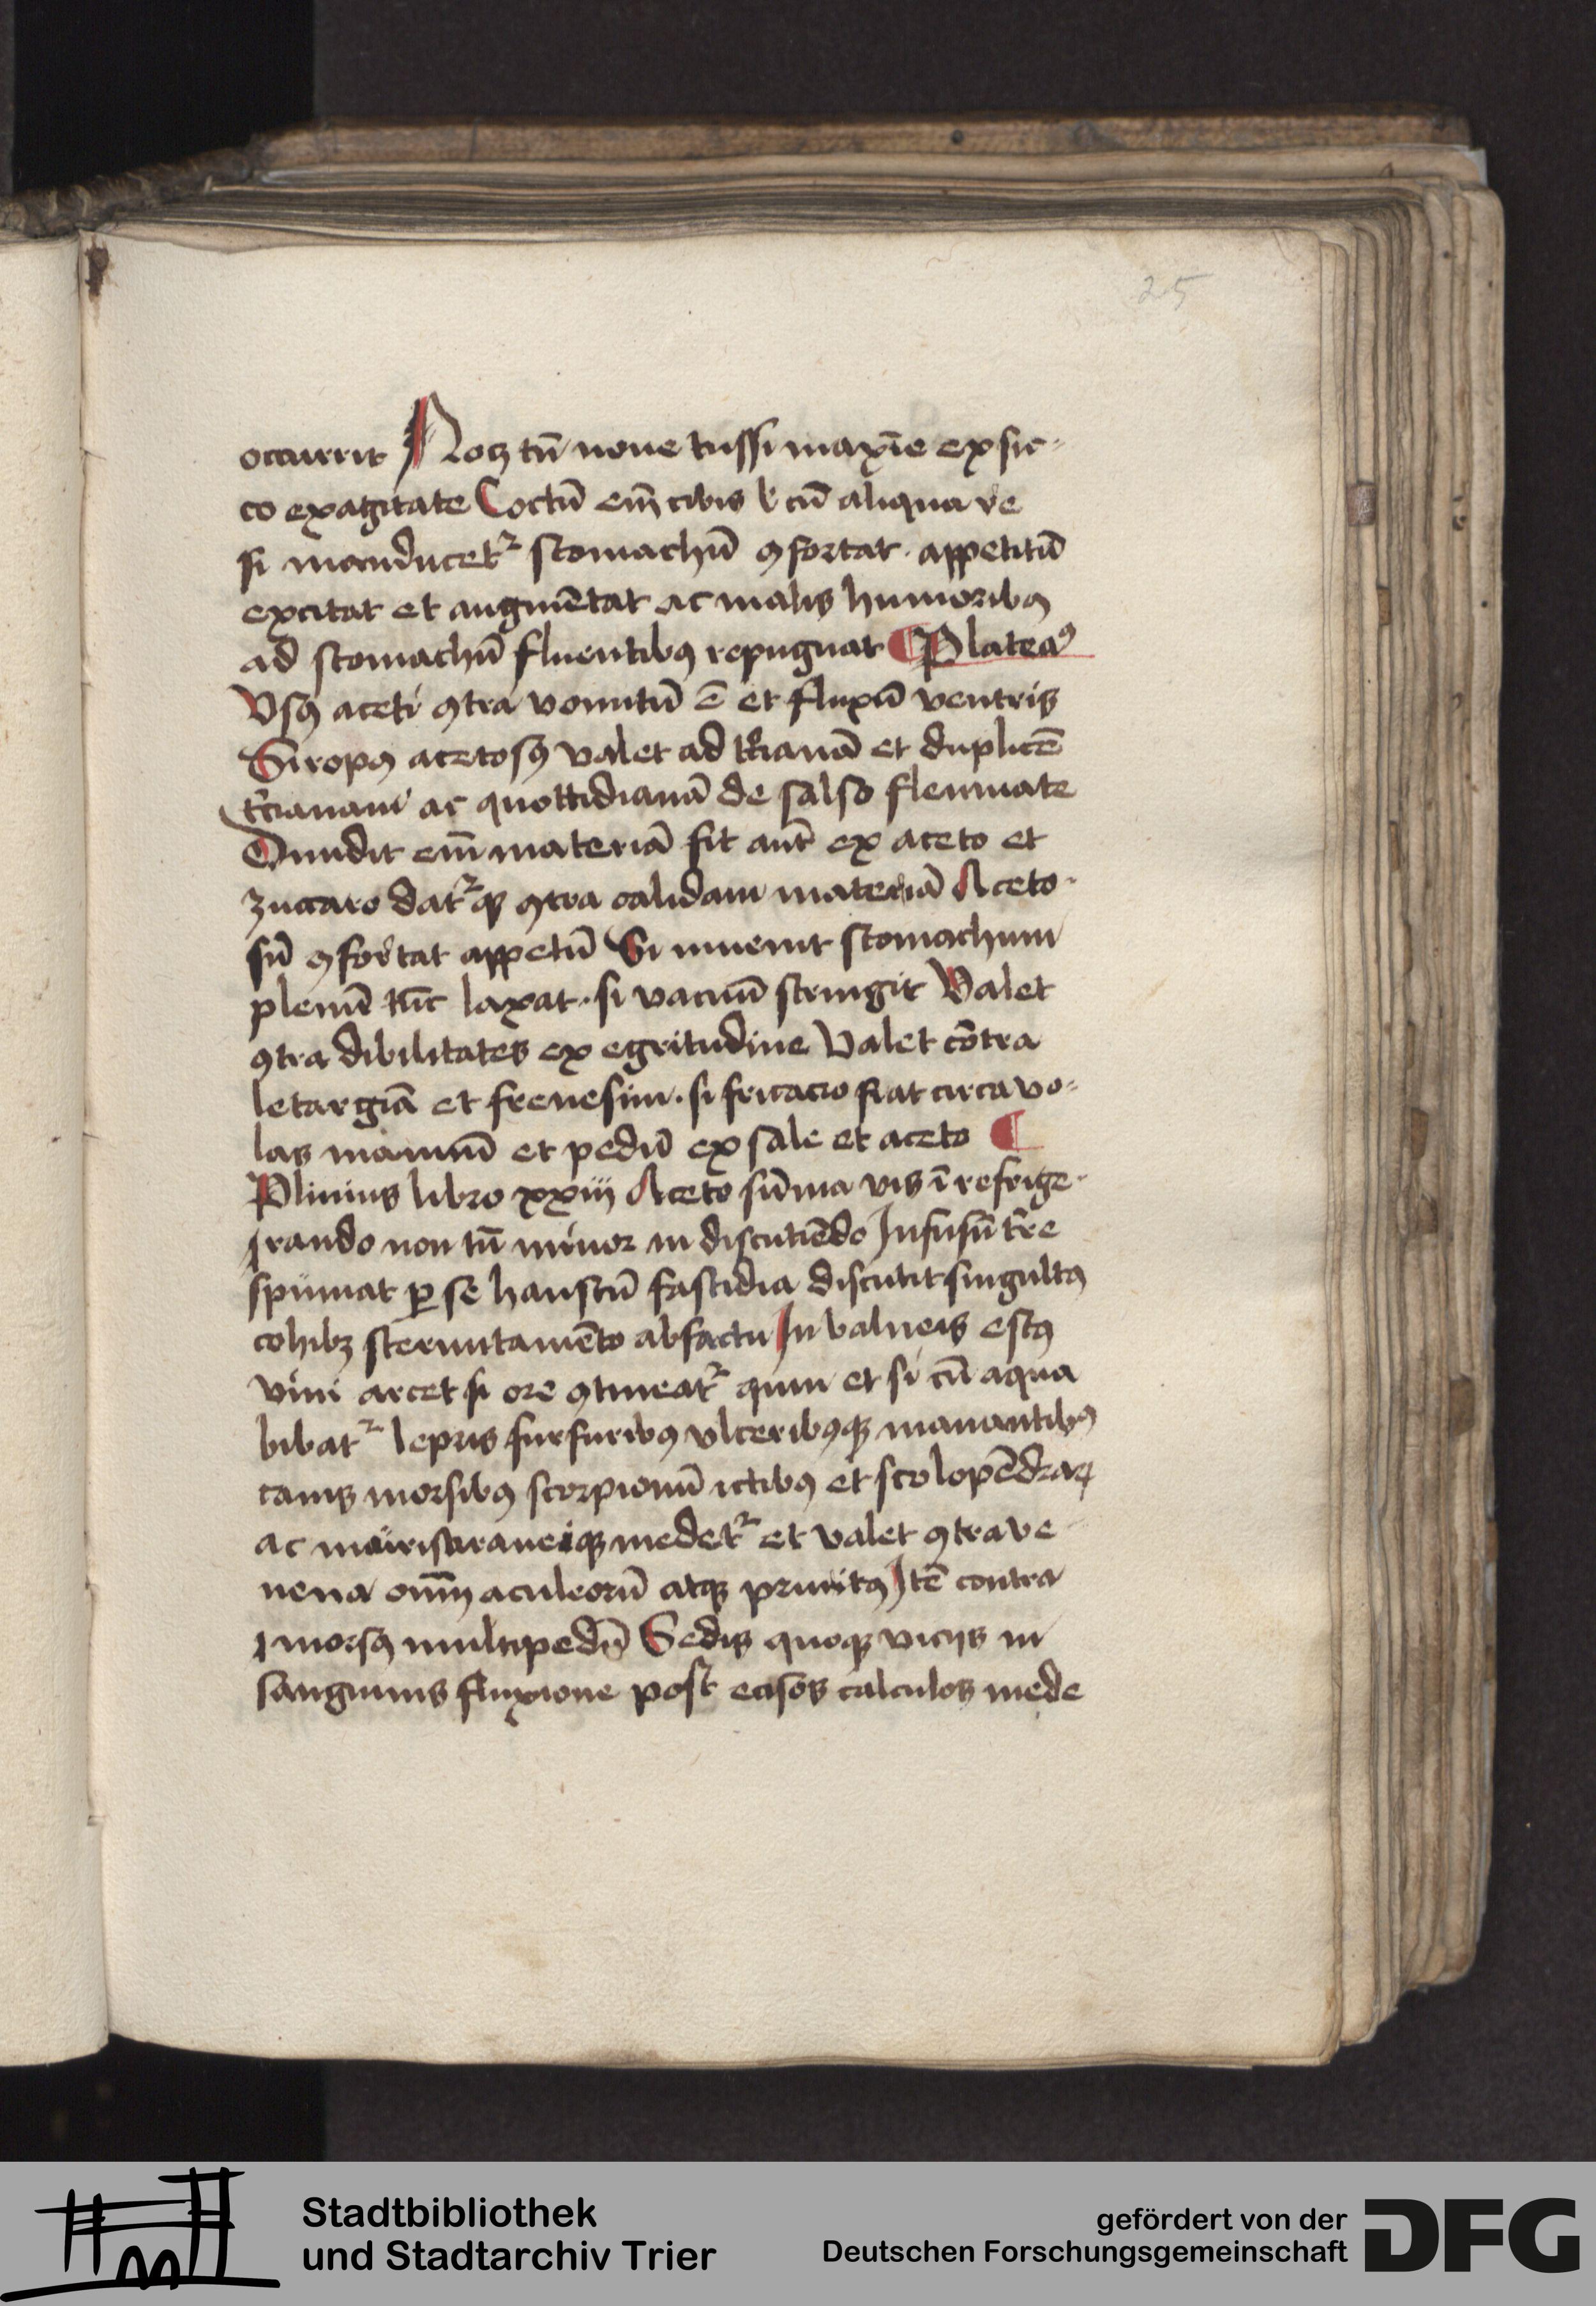 25
occurrit Nocꝫ tn̄ noue tussi maxīe ex sic-
co exagitate Coctū em̄ cibis ł cū aliqua re
si manducet᷑ stomachū ꝯfortat · appetitū
excitat et augmētat ac malis humoribꝰ
ad stomachū fluentibꝰ repugnat ¶ Plateaꝰ
Vsꝰ aceti ꝯtra vomitū ē et fluxū ventris
Siropꝰ acetosꝰ valet ad tꝛ̄cianā et duplicē
tꝛ̄cianam ac quottidianā de salso flenmate
Diuidit em̄ materiā fit aut̄ ex aceto et
zuccaro dat᷑qꝫ ꝯtra calidam materiā Aceto-
sū ꝯfortat appetū Si inuenit stomachum
plenū tūc laxat · si vacuū stringit Valet
ꝯtra dibilitates ex egritudine Valet cōtra
letargiā et frenesim · si fricacio fiat circa vo-
las manuū et pedū ex sale et aceto ¶
Plinius libro xxiij Aceto sūma vis ī refrige-
rando non tn̄ minor in discutiēdo Infusū tr̄e
spumat ꝑ se haustū fastidia discutit singultꝰ
cohibꝫ sternutamēto abfactu In balneis estꝰ
vini arcet si ore ꝯtineat᷑ quin et si cū aqua
bibat᷑ lepris furfuribꝰ vlceribꝰqꝫ manantibꝰ
canis morsibꝰ scorpionū ictibꝰ et scolopēdraꝝ
ac muris araneiqꝫ medet᷑ et valet ꝯtra ve
nena oīm aculeorū atqꝫ pruritꝰ Itē contra
morsꝰ multipedū Sedis quoqꝫ vicijs in
sanguinis fluxione post ecisos calculos mede
Stadtbibliothek
und Stadtarchiv Trier
gefördert von der
Deutschen Forschungsgemeinschaft
DFG